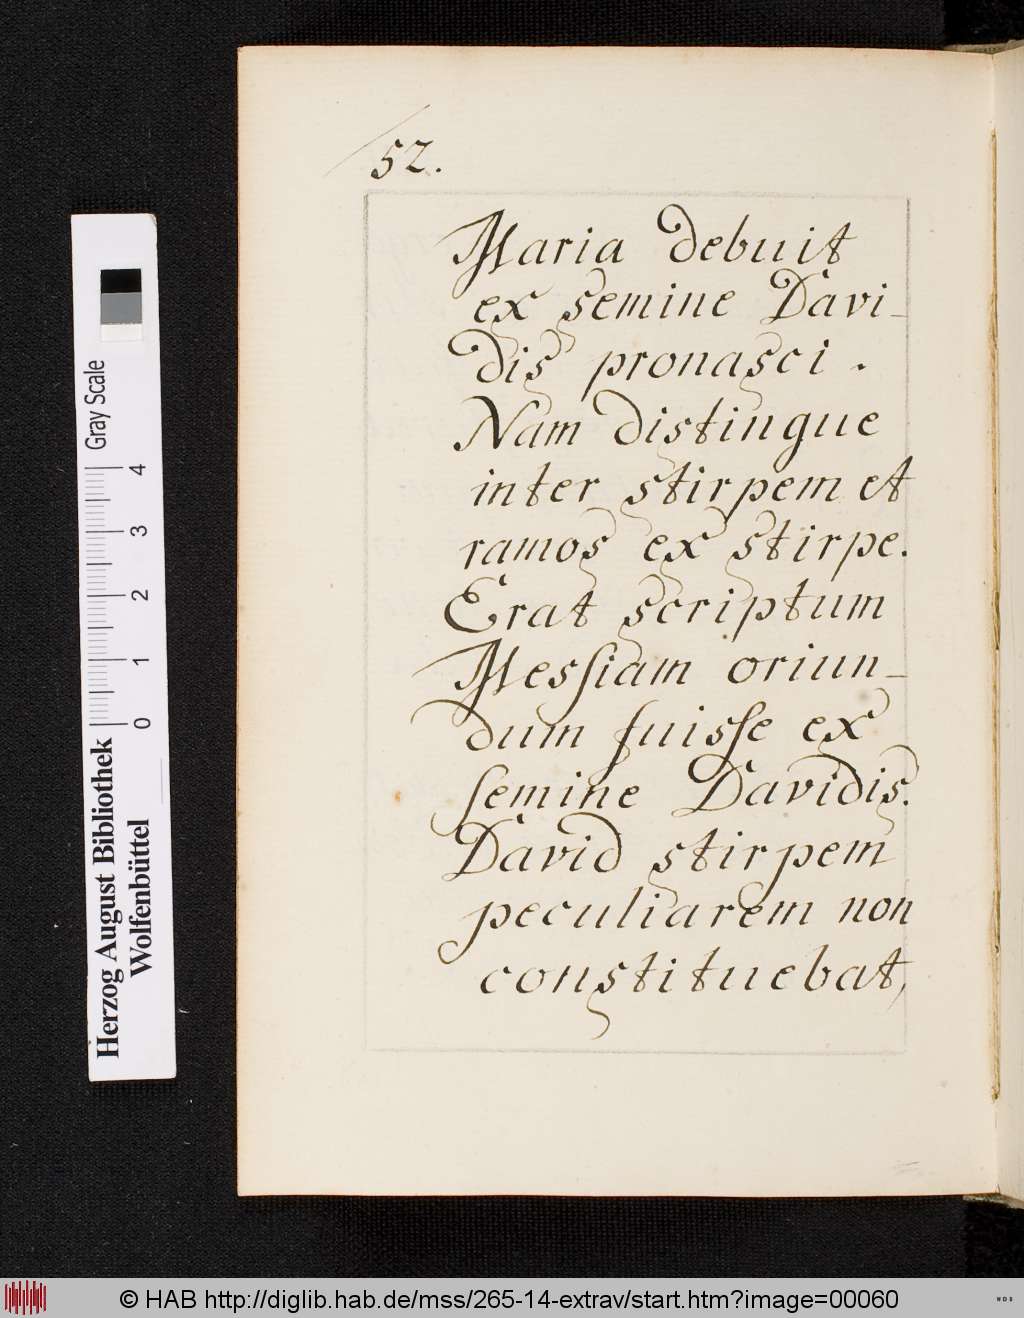 52.
Maria debuit
ex semine Davi-
dis pronasci.
Nam distingue
inter stirpem et
ramos ex stirpe.
Erat scriptum
Mesſiam oriun-
dum fuisſe ex
ſemine Davidis.
David stirpem
peculiarem non
constituebat,
Gray Scale
0 1 2 3 4
Herzog August Bibliothek
Wolfenbüttel
© HAB http://diglib.hab.de/mss/265-14-extrav/start.htm?image=00060